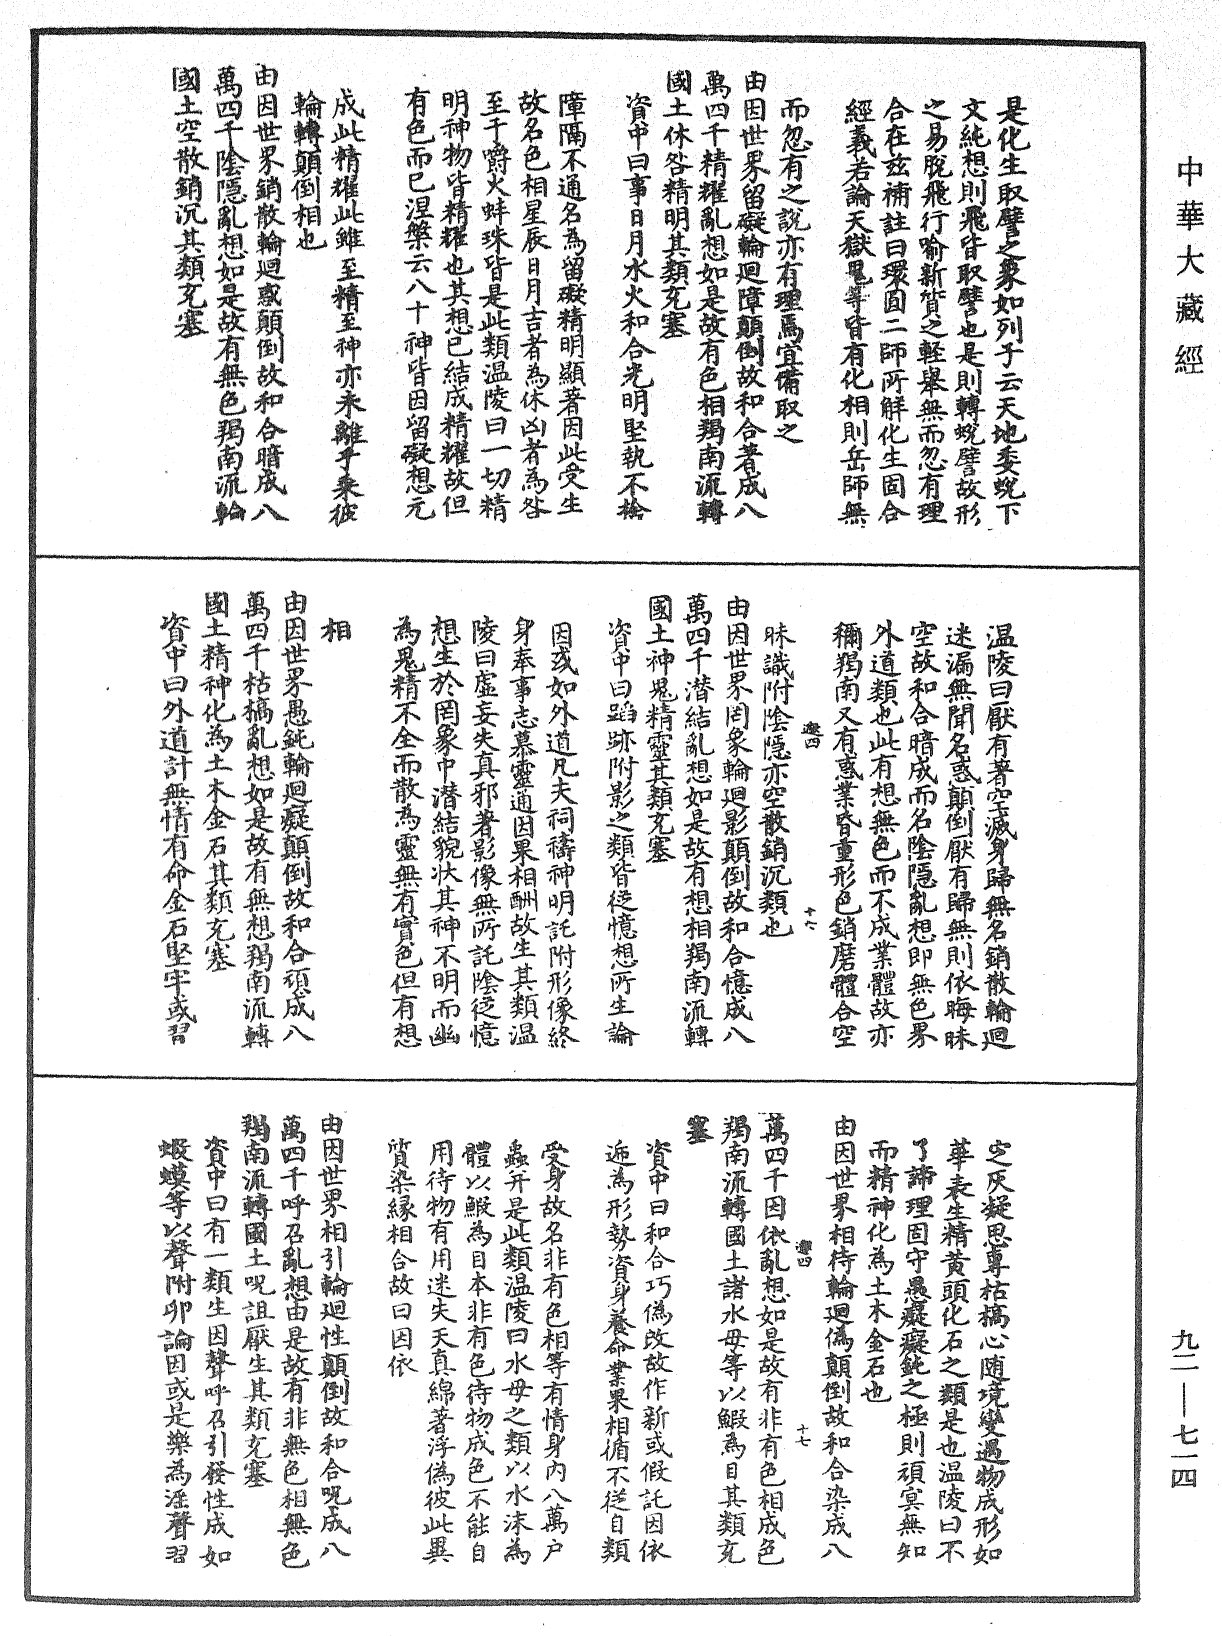 中華大藏經
是化生取譬之象如列子云天地委蛻下
文純想則飛皆取譬也是則轉蛻譬故形
之易脫飛行喻新質之輕舉無而忽有理
合在玆補註曰環圓二師所解化生固合
經義若論天獄鬼等皆有化相則岳師無
而忽有之說亦有理焉宜備取之
由因世界留礙輪迴障顛倒故和合著成八
萬四千精耀亂想如是故有色相羯南流轉
國土休咎精明其類充塞
資中曰事日月水火和合光明堅執不捨
障隔不通名為留礙精明顯著因此受生
故名色相星辰日月吉者為休凶者為咎
至千爝火蚌珠皆是此類溫陵曰一切精
明神物皆精耀也其想已結成精耀故但
有色而已涅槃云八十神皆因留礙想元
成此精耀此雖至精至神亦未離乎乘彼
輪轉顛倒相也
由因世界銷散輪迴惑顛倒故和合暗成八
萬四千陰隱亂想如是故有無色羯南流輪
國土空散銷沉其類充塞
溫陵曰厭有著空滅身歸無名銷散輪迴
迷漏無聞名惑顛倒厭有歸無則依晦昧
空故和合暗成而名陰隱亂想即無色界
外道類也此有想無色而不成業體故亦
稱羯南又有惑業昏重形色銷磨體合空
昧識附陰隱亦空散銷沉類也
由因世界罔象輪迴影顛倒故和合憶成八
萬四千潛結亂想如是故有想相羯南流轉
國土神鬼精靈其類充塞
資中曰蹈跡附影之類皆從憶想所生論
因或如外道凡夫祠禱神明託附形像終
身奉事志慕靈通因果相酬故生其類溫
陵曰虛妄失真邪著影像無所託陰從憶
想生於罔象中潛結貌狀其神不明而幽
為鬼精不全而散為靈無有實色但有想
相
由因世界愚鈍輪迴癡顛倒故和合頑成八
萬四千枯槁亂想如是故有無想羯南流轉
國土精神化為土木金石其類充塞
資中曰外道計無情有命金石堅牢或習
定灰凝思專枯槁心隨境變遇物成形如
華表生精黃頭化石之類是也溫陵曰不
了諦理固守愚癡癡鈍之極則頑冥無知
而精神化為土木金石也
由因世界相待輪迴偽顛倒故和合染成八
萬四千因依亂想如是故有非有色相成色
羯南流轉國土諸水母等以鰕為目其類充
塞
資中曰和合巧偽改故作新或假託因依
遞為形勢資身養命業果相循不從自類
受身故名非有色相等有情身內八萬户
蟲并是此類溫陵曰水母之類以水沫為
體以鰕為目本非有色待物成色不能自
用待物有用迷失天真綿著浮偽彼此異
質染緣相合故曰因依
由因世界相引輪迴性顛倒故和合呪成八
萬四千呼召亂想由是故有非無色相無色
羯南流轉國土呪詛厭生其類充塞
資中曰有一類生因聲呼召引發性成如
蝦蟆等以聲附卵論因或是樂為淫聲習
九二—七一四